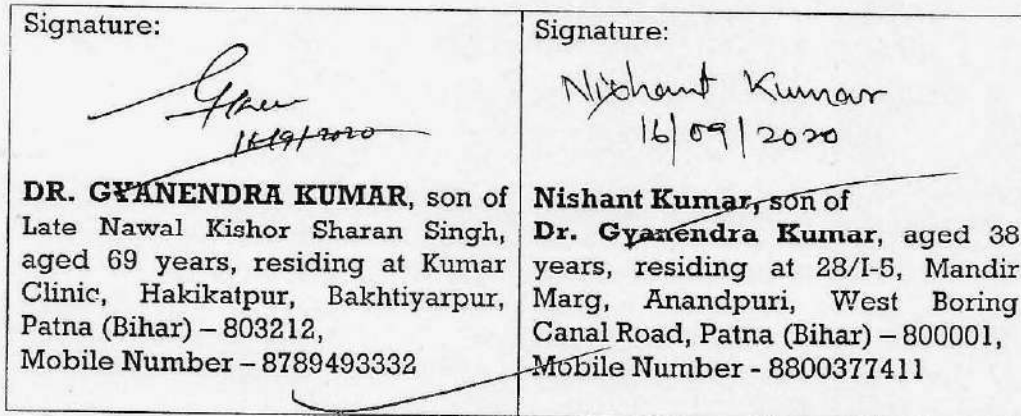 Signature:
16/9/2020
DR. GYANENDRA KUMAR, son of
Late Nawal Kishor Sharan Singh,
aged 69 years, residing at Kumar
Clinic, Hakikatpur, Bakhtiyarpur,
Patna (Bihar) – 803212,
Mobile Number – 8789493332
Signature:
Nishant Kumar
16/09/2020
Nishant Kumar, son of
Dr. Gyanendra Kumar, aged 38
years, residing at 28/I-5, Mandir
Marg, Anandpuri, West Boring
Canal Road, Patna (Bihar) – 800001,
Mobile Number - 8800377411